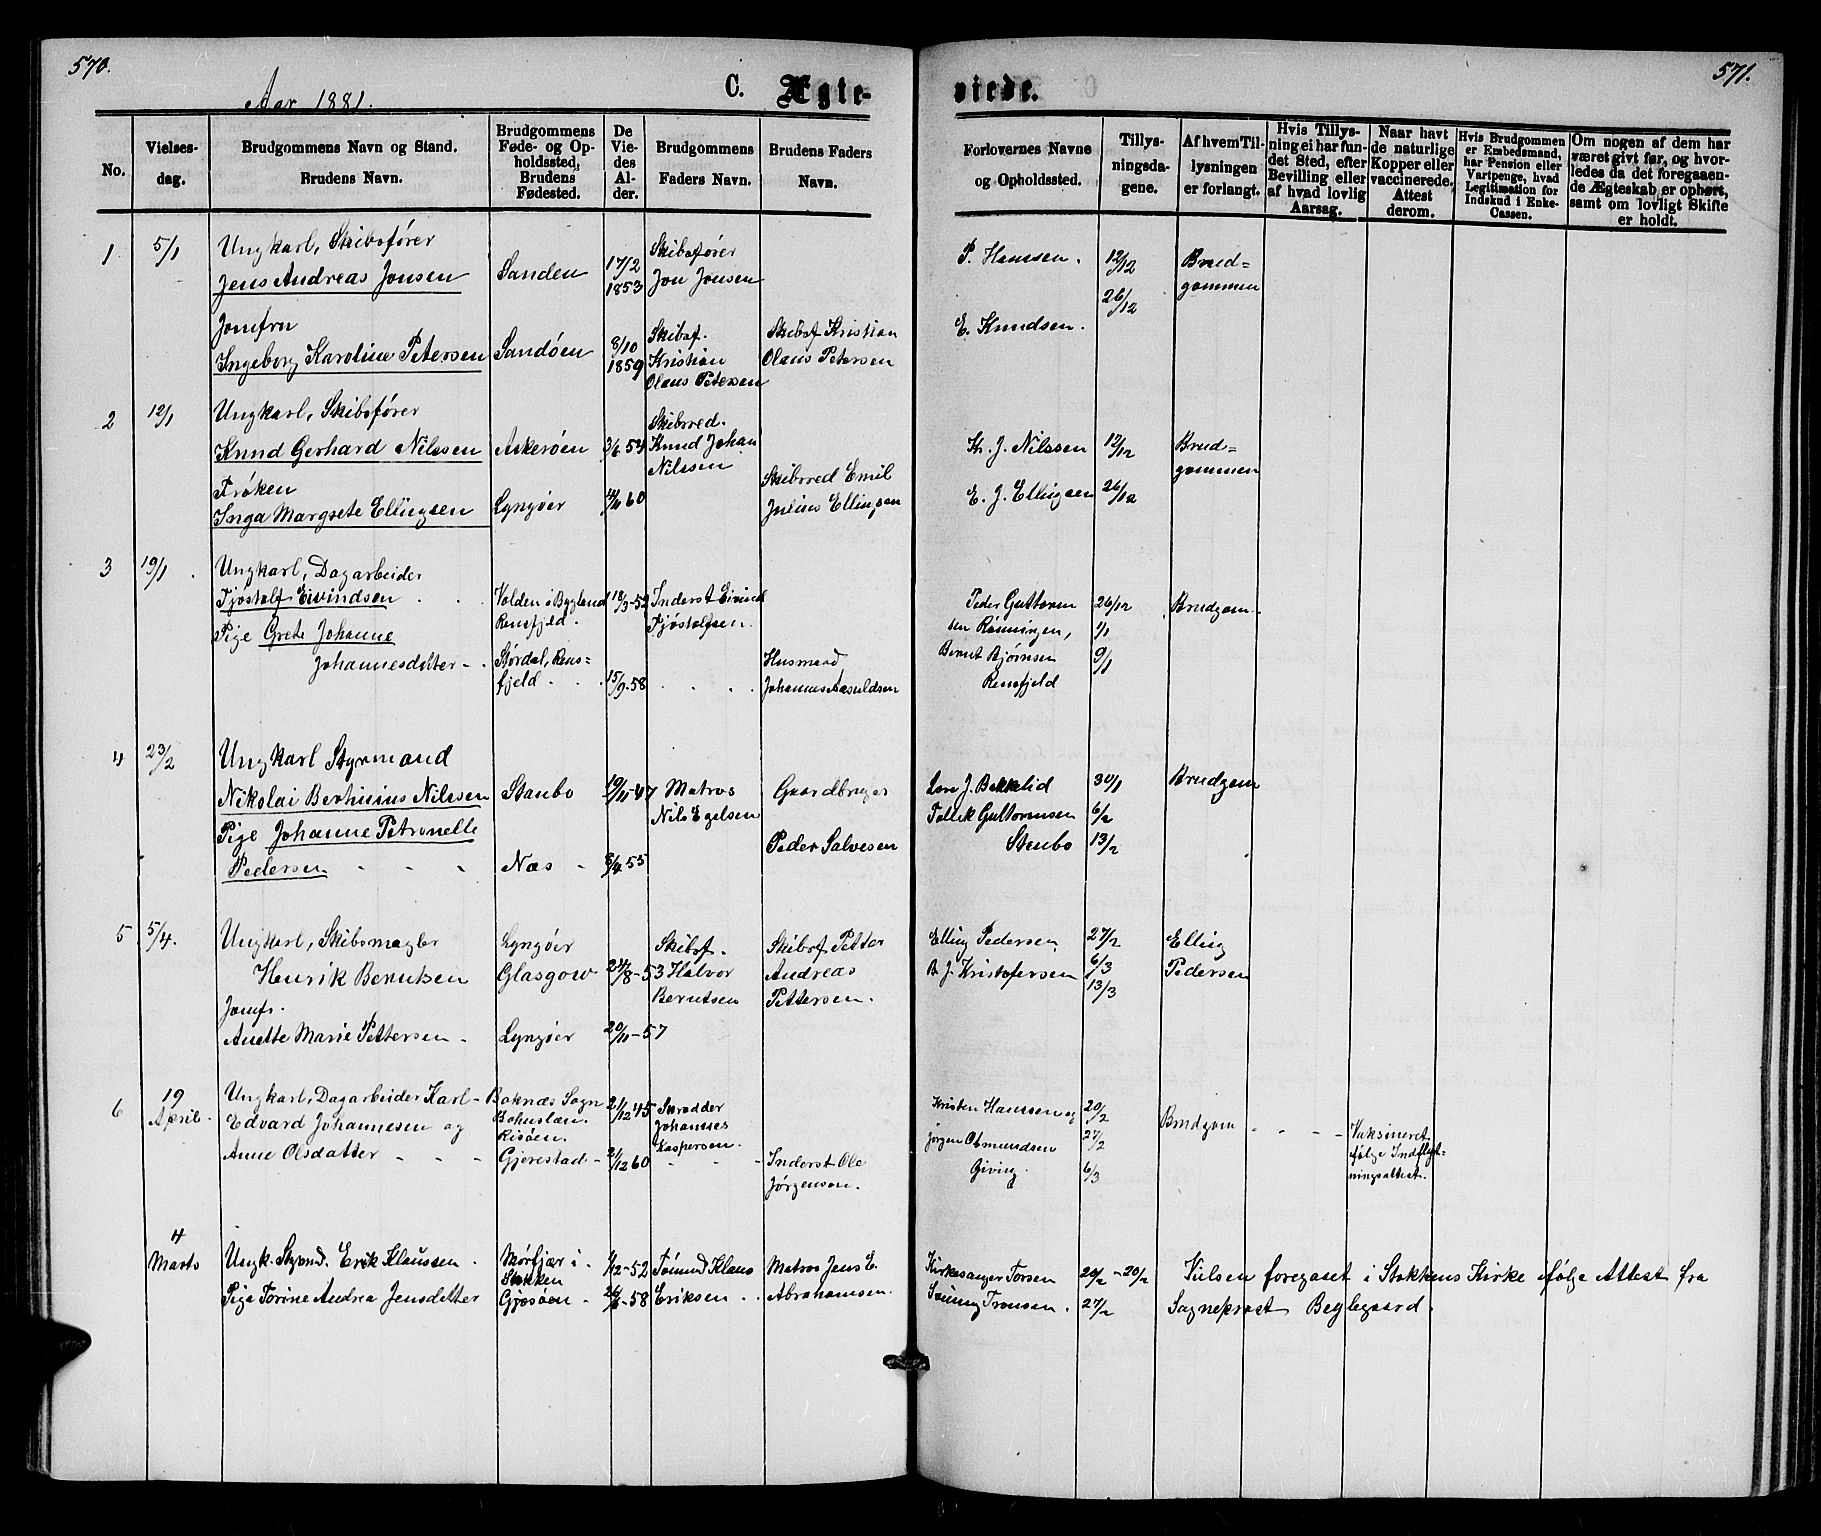 570.
571.
Aar 1881.
C. Ægteviede.
No.
Vielsesdag.
Brudgommens Navn og Stand.
Brudens Navn.
Brudgommens
Føde- og Op-
holdssted,
Brudens
Fødested.
De
Vie-
des
Al-
der.
Brudgommens
Faders Navn.
Brudens Faders
Navn.
Forlovernes Navne
og Opholdssted.
Tillys-
ningsda-
gene.
Af hvem Til-
lysningen
er forlangt.
Hvis Tillys-
ning ei har fun-
det Sted, efter
Bevilling eller
af hvad lovlig
Aarsag.
Naar havt
de naturlige
Kopper eller
vaccinerede,
Attest
derom.
Hvis Brudgommen
er Embedsmand,
har Pension eller
Vartpenge, hvad
Legitimation for
Indskud i Enke-
Cassen.
Om nogen af dem har
været givt før, og hvor-
ledes da det foregaaen-
de Ægteskab er ophørt,
samt om lovligt Skifte
er holdt.
1
5/1
Ungkarl, Skibsfører
Jens Andreas Jonsen
Sanden
17/2
1853
Skibsfører
Jon Jonsen
Jomfru
Ingeborg Karoline Petersen
Sandøen
8/10
1859
Skibsf.
Kristian
Olaus Petersen
Skibsf Kristian
Olaus Petersen
P. Hanssen.
E. Knudsen.
12/12
26/12
Brud=
gommen
2
12/1
Ungkarl, Skibsfører
Knud Gerhard Nilssen
Askerøen
3/6 54
Skibsred.
Knud Johan
Nilssen
Frøken
Inga Margrete Ellingsen
Lyngøer
60
Skibsred Emil
Julius Ellingsen
Kn. J. Nilssen
E. J. Ellingsen
12/12
26/12
Brud=
gommen
3
19/1
Ungkarl, Dagarbeider
Tjøstolf Eivindsen
Volden i Bygland
Rensfjeld.
18/3-52
Inderst Eivind
Tjøstolfsen.
Pige Grete Johanne
Johannesdatter
Størdal, Rens=
fjeld
15/9-58
Husmand
Johannes Aasuldsen
Peder Guttorm
sen Rønningen,
Bernt Bjørnsen
Rensfjeld
26/12
1/1
9/1
Brudgom
4
23/2
Ungkarl Styrmand
Nikolai Berthinius Nilssen
Staubo
19/11-47
Matros
Nils Egelsen
Pige Johanne Petronelle
Pedersen
Næs
8/4-55
Gaardbruger
Peder Salvesen
Lars J. Bekklid
Tallek Guttormsen
Stenbo
30/1
6/2
13/2
Brudgom
5
5/4.
Ungkarl, Skibsmægler
Henrik Berntsen
Lyngøer
Glasgow
24/8-53
Skibsf.
Halvor
Berntsen
Jomfr.
Anette Marie Pettersen
Lyngøer
20/11-57
Skibsf Petter
Andreas
Pettersen.
Elling Pedersen
B. J. Kristofersen
27/2
6/3
13/3
Elling
Pedersen
6
19
April
Ungkarl, Dagarbeider Karl
Edvard Johannesen og
Anne Olsdatter
Boknæs Sogn
Bohuslæn
Risøen.
Gjerestad
21/12 45
21/12 60
Skrædder
Johannes
Kaspersen.
Inderst Ole
Jørgensen.
Kristen Hanssen og
Jørgen Osmundsen
Giving.
20/2
27/2
6/3
Brudgom
Vaksineret
ifølge Indflyt=
ningsattest.
4
Marts
Ungk. Styrmd. Erik Klaussen
Pige Torine Andrea Jensdatter
Mørfjær i
Stokken
Gjesøen
1/12-52
58
Tønnes Klaus
Eriksen
Matros Jens E.
Abrahamsen.
Kirkesanger Torsen
Sønning Tronsen.
20/2-20/2
27/2
Vielsen foregaaet i Stokkens Kirke ifølge Attest fra
Sogneprest Beglegaard.